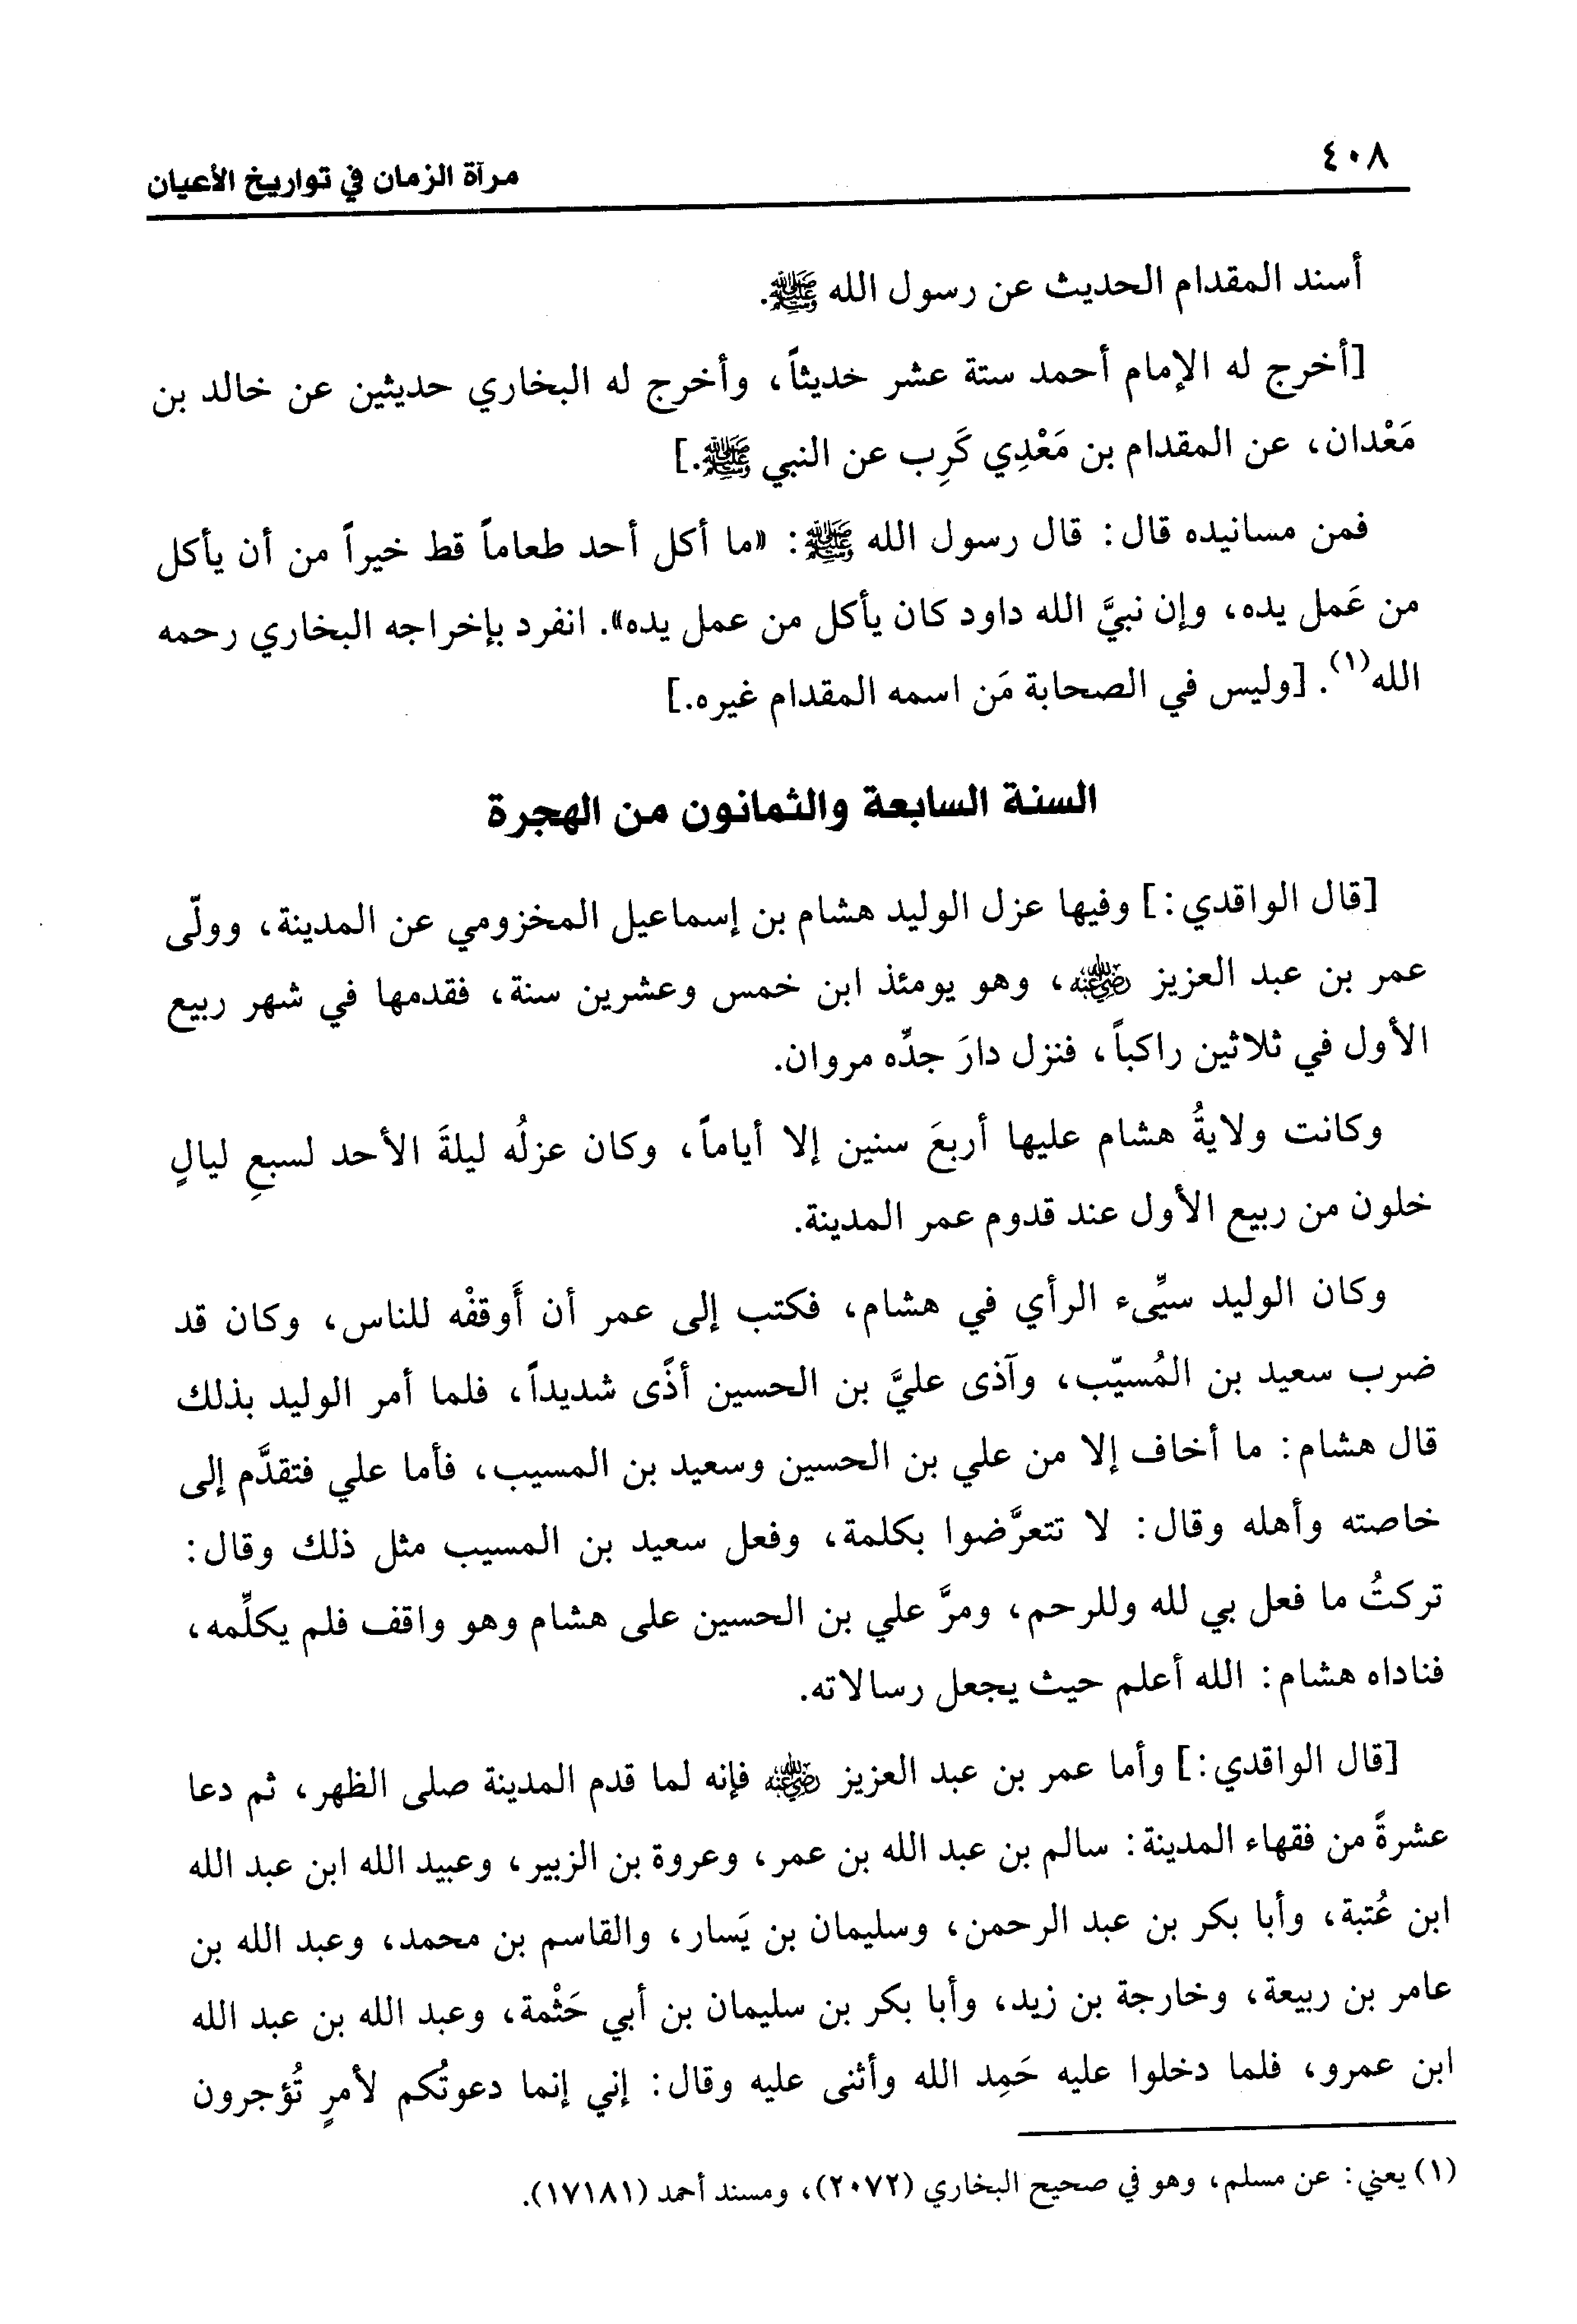 ٤٠٨
مرآة الزمان في تواريخ الأعيان
أسند المقدام الحديث عن رسول الله ﷺ.
[أخرج له الإمام أحمد ستة عشر خديثاً، وأخرج له البخاري حديثين عن خالد بن
مَعْدان، عن المقدام بن مَعْدِي كَرِب عن النبي ﷺ.]
فمن مسانيده قال: قال رسول الله ﷺ: «ما أكل أحد طعاماً قط خيراً من أن يأكل
من عَمل يده، وإن نبيَّ الله داود كان يأكل من عمل يده». انفرد بإخراجه البخاري رحمه
الله(١). [وليس في الصحابة مَن اسمه المقدام غيره.]
السنة السابعة والثمانون من الهجرة
[قال الواقدي:] وفيها عزل الوليد هشام بن إسماعيل المخزومي عن المدينة، وولّى
عمر بن عبد العزيز رضي الله عنه، وهو يومئذ ابن خمس وعشرين سنة، فقدمها في شهر ربيع
الأول في ثلاثين راكباً، فنزل دارَ جدِّه مروان.
وكانت ولايةُ هشام عليها أربعَ سنين إلا أياماً، وكان عزلُه ليلةَ الأحد لسبعِ ليالٍ
خلون من ربيع الأول عند قدوم عمر المدينة.
وكان الوليد سيِّىء الرأي في هشام، فكتب إلى عمر أن أَوقفْه للناس، وكان قد
ضرب سعيد بن المُسيّب، وآذى عليَّ بن الحسين أذًى شديداً، فلما أمر الوليد بذلك
قال هشام: ما أخاف إلا من علي بن الحسين وسعيد بن المسيب، فأما علي فتقدَّم إلى
خاصته وأهله وقال: لا تتعرَّضوا بكلمة، وفعل سعيد بن المسيب مثل ذلك وقال:
تركتُ ما فعل بي لله وللرحم، ومرَّ علي بن الحسين على هشام وهو واقف فلم يكلِّمه،
فناداه هشام: الله أعلم حيث يجعل رسالاته.
[قال الواقدي:] وأما عمر بن عبد العزيز رضي الله عنه فإنه لما قدم المدينة صلى الظهر، ثم دعا
عشرةً من فقهاء المدينة: سالم بن عبد الله بن عمر، وعروة بن الزبير، وعبيد الله ابن عبد الله
ابن عُتبة، وأبا بكر بن عبد الرحمن، وسليمان بن يَسار، والقاسم بن محمد، وعبد الله بن
عامر بن ربيعة، وخارجة بن زيد، وأبا بكر بن سليمان بن أبي حَثْمة، وعبد الله بن عبد الله
ابن عمرو، فلما دخلوا عليه حَمِد الله وأثنى عليه وقال: إني إنما دعوتُكم لأمرٍ تُؤجرون
(١) يعني: عن مسلم، وهو في صحيح البخاري (٢٠٧٢)، ومسند أحمد (١٧١٨١).